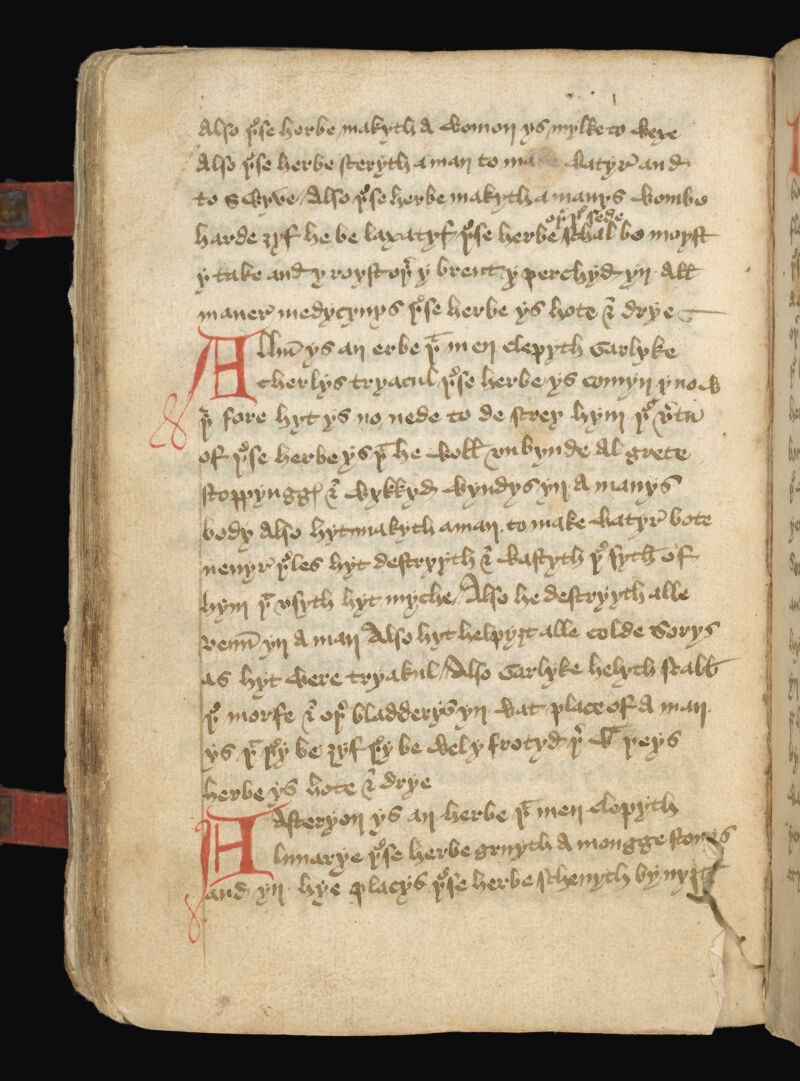 Also þͤse herbe makyth a womon ys mylke to wexe
Also þͤse herbe steryth a man to ma watyr̄ and
to swyve / Also þͤse herbe makyth a manys wombe
oþͬ þͤ sede
harde ȝyf he be laxatyf þͤse herbe schal be moyst
y take and y royst oþͬ y brent y perchyd yn all
maner̄ medycynys þͤse herbe ys hote & drye
Allm̄ ys an erbe þͭ men clepyth Garlyke
cherlys tryacul / þͤse herbe ys comyn y now
þͬ fore hyt ys no nede to de strey hym þͤ v̾tu
of þͤse herbe ys þͭ he woll vnbynde al grete
stoppyngg̉ & wykkyd wyndys yn a manys
body Also hyt makyth a man to make watyr̄ bote
neuyr̄ þͤles hyt destryyth & wastyth þͤ syth of
hym þͭ vsyth hyt myche / Also he destryyth alle
venm̄ yn a man Also hyt helpyȝt alle colde sorys
as hyt were tryakul / Also Garlyke helyth scabb
þͤ morfe & oþͬ bladderys yn wat place of a man
ys þͭ þͤy be ȝyf þͤy be wel y frotyd þͬ wͭ þeys
herbe ys hote & drye
Asteryon ys an herbe þͭ men clepyth
lunarye þͤse herbe gruyth a mongge stonys
and yn hye placys þͤse herbe schenyth by nyȝt